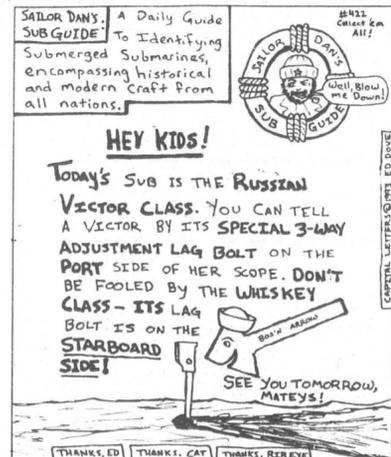 SAILOR DAN'S
SUB GUIDE
A Daily Guide
To Identifying
Submerged Submarines,
encompassing historical
and modern Craft from
all nations.
#422
Collect 'em
All!
SAILOR DAN'S
SUB GUIDE
Well, Blow
me Down!
HEY KIDS!
TODAY'S SUB IS THE RUSSIAN
VICTOR CLASS. YOU CAN TELL
A VICTOR BY ITS SPECIAL 3-WAY
ADJUSTMENT LAG BOLT ON THE
PORT SIDE OF HER SCOPE. DON'T
BE FOOLED BY THE WHISKEY
CLASS - ITS LAG
BOLT IS ON THE
STARBOARD
SIDE!
BOS'N ARROW
SEE YOU TOMORROW,
MATEYS!
CAPITAL LETTERS © 1993 ED DOVE
THANKS, ED
THANKS, CAT
THANKS, RIBEYE